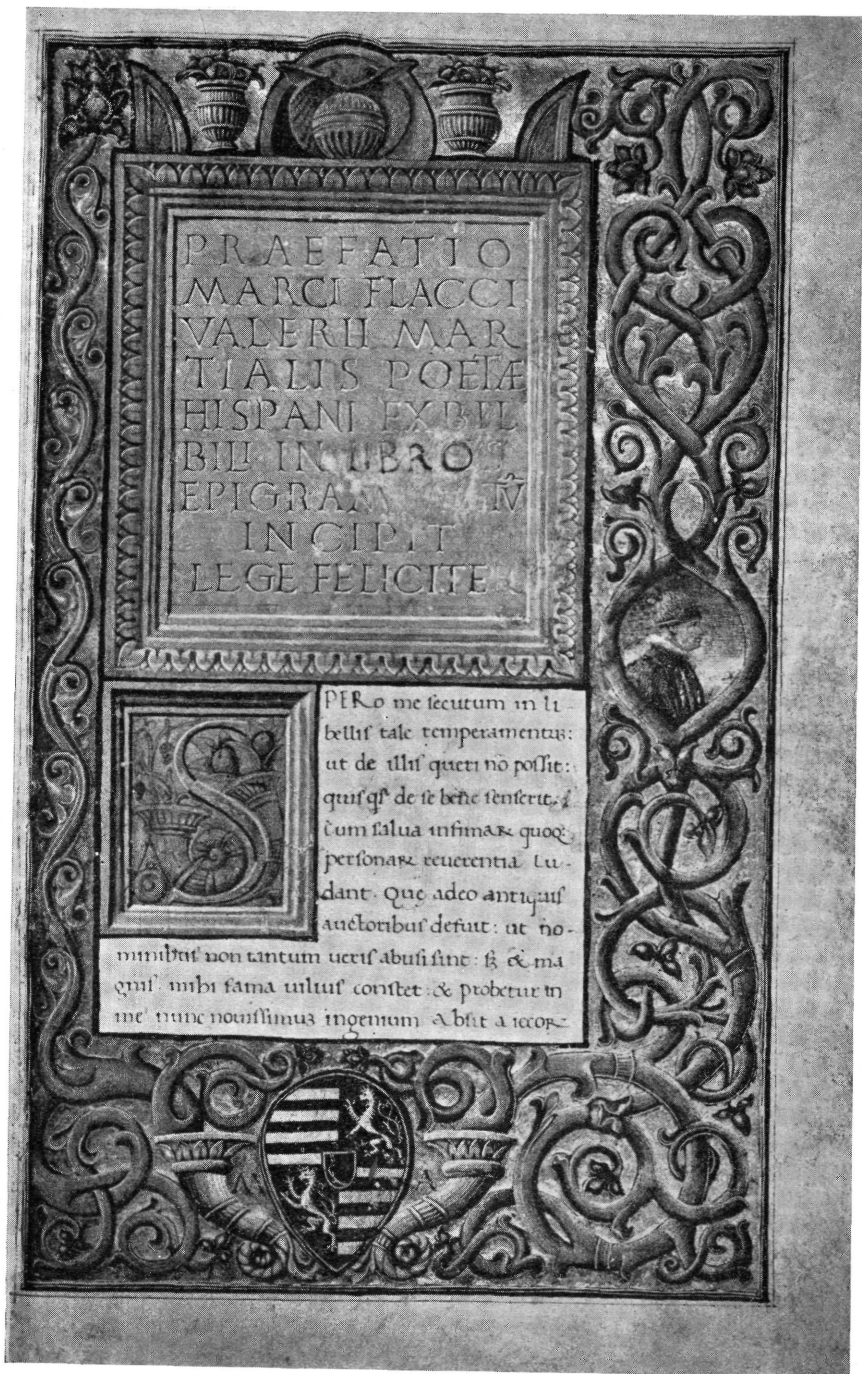 PRAEFATIO
MARCI FLACCI
VALERII MAR
TIALIS POETÆ
HISPANI EXBIL
BILI IN LIBRO
INCIPIT
LEGE FELICITE
S
PERO me secutum in li
bellis tale temperamentuꝫ:
ut de illis queri nō possit:
de se bene senserit.
cum salua infimaꝝ quoqꝫ
personaꝝ reuerentia Lu-
dant. Que adeo antiquis
auctoribus defuit: ut no-
minibus non tantum ueris abusi sint: sꝫ & ma
gnis. mihi fama uilius constet: & probetur in
me nunc nouissimuꝫ ingenium Absit a iocoꝝ